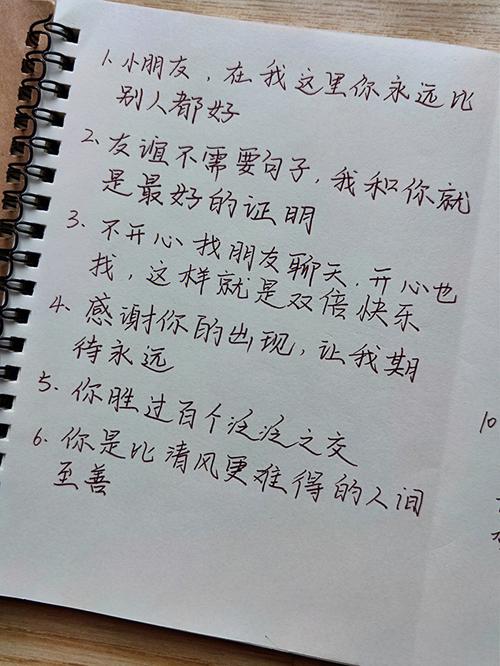 1. 小朋友，在我这里你永远比
别人都好
2. 友谊不需要句子，我和你就
是最好的证明
3. 不开心找朋友聊天，开心也
找，这样就是双倍快乐
4. 感谢你的出现，让我期
待永远
5. 你胜过百个泛泛之交
6. 你是比清风更难得的人间
至善
10